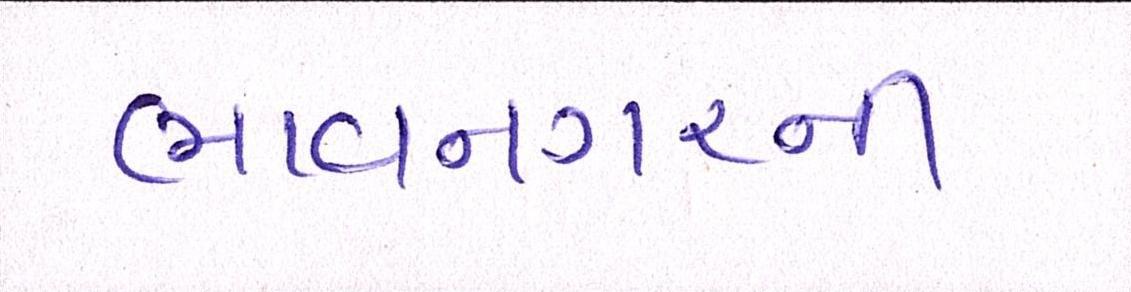 ભાવનગરની